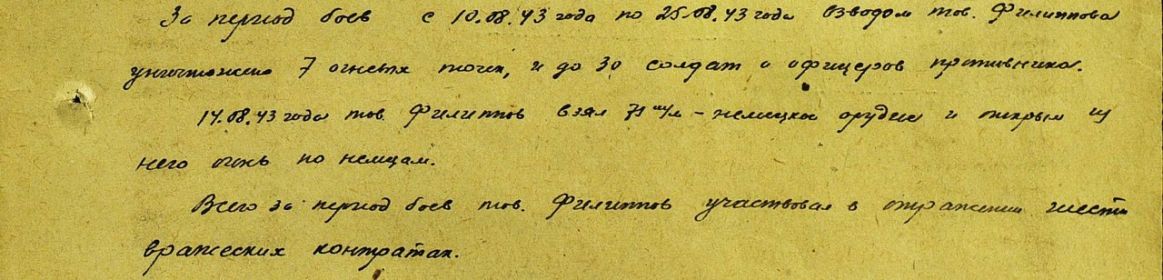 За период боев с 10.08.43 года по 25.08.43 года взводом тов. Филиппова
уничтожено 7 огневых точек, и до 30 солдат и офицеров противника.
14.08.43 года тов. Филиппов взял 75 м/м - немецкое орудие и открыл из
него огонь по немцам.
Всего за период боев тов. Филиппов участвовал в отражении шести
вражеских контратак.